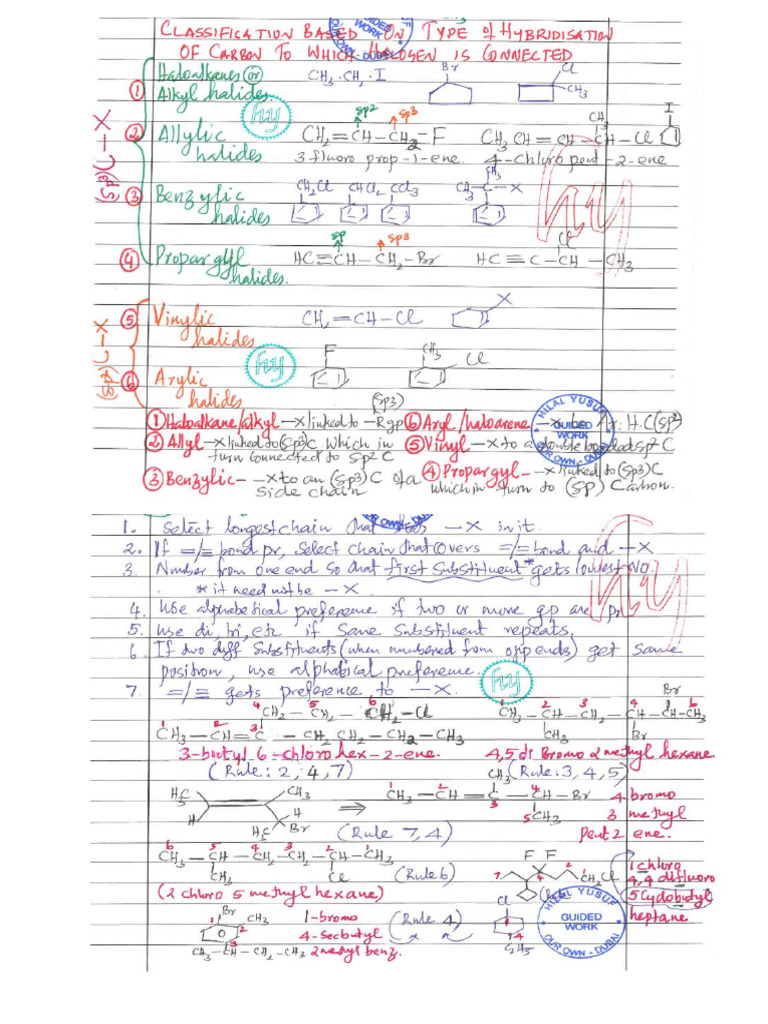 CLASSIFICATION BASED ON TYPE of HYBRIDISATION
OF CARBON TO WHICH HALOGEN IS CONNECTED
① Haloalkanes (or)
Alkyl halides
CH3 . CH2 . I
Br
Cl
CH3
② Allylic
halides
sp2
sp3
CH2=CH-CH2-F
3 fluoro prop-1-ene.
CH3
CH3 CH=CH-CH-Cl
4-Chloro pent-2-ene
I
③ Benzylic
halides
CH2Cl CHCl2 CCl3
CH3
CH3-C-X
④ Propargyl
halides.
sp
sp3
HC≡CH-CH2-Br
Cl
HC≡C-CH-CH3
(Sp3)C-X
⑤ Vinylic
halides
CH2=CH-Cl
X
⑥ Arylic
halides
F
CH3
Cl
(Sp2)C-X
hy
(Sp3)
① Haloalkane/alkyl -X linked to -R gp
⑥ Aryl/haloarene -X Ar. H.C(Sp2)
② Allyl -X linked to (Sp3)C which in
turn connected to Sp2 C
⑤ Vinyl -X to a double bonded Sp2 C
③ Benzylic -X to an (Sp3)C of a
side chain
④ Propargyl -X linked to (Sp3)C
which in turn to (SP) Carbon.
HILAL YUSUF
GUIDED
WORK
OUR OWN - DUBAI
1. Select longest chain that has -X in it.
2. If =/≡ bond pr, Select chain that covers =/≡ bond and -X
3. Number from one end so that first substituent* gets lowest No.
* it need not be -X.
4. Use alphabetical preference if two or more gp are pr
5. Use di, tri, etc if Same Substituent repeats.
6. If two diff Substituents (when numbered from opp ends) get same
position, use alphatical preference.
7. =/≡ gets preference to -X.
hy
4 CH2 - 5 CH2 - 6 CH2-Cl
1 CH3-CH=2 C 3-CH2 CH2-CH2-CH3
3-butyl, 6-chloro hex-2-ene.
(Rule: 2, 4, 7)
Br
1 CH3-2 CH-3 CH2-4 CH-CH-6 CH3
CH3 Br
4,5 di Bromo 2 methyl hexane.
(Rule: 3, 4, 5)
H3C CH3
H H
H3C Br
(Rule 7, 4)
CH3
1 CH3-2 CH=3 C-4 CH-Br
5 CH3
4 bromo
3 methyl
Pent 2 ene.
6 CH3-5 CH-4 CH2-3 CH2-2 CH-1 CH3
CH3 Cl
(Rule 6)
(2 chloro 5 methyl hexane)
F F
CH2Cl
1 chloro
4,4 difluoro
5 Cyclobutyl
heptane
Br
CH3
CH3-CH-CH2-CH3
1-bromo
4-Secbutyl
2 methyl benz.
(Rule 4)
Cl
C2H5
HILAL YUSUF
GUIDED
WORK
OUR OWN - DUBAI